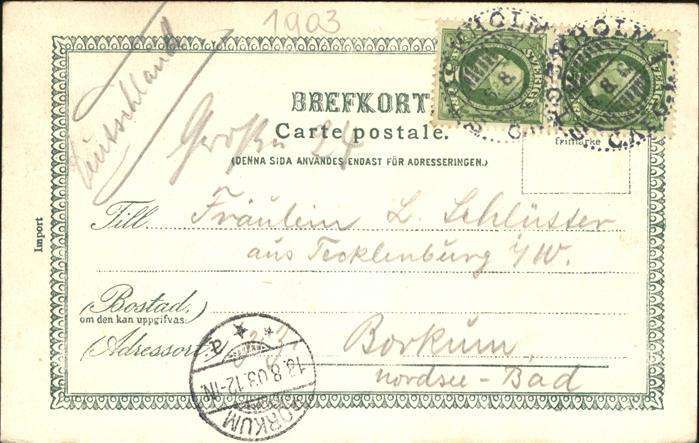 1903
Deutschland
BREFKORT
Carte postale.
(DENNA SIDA ANVÄNDES ENDAST FÖR ADRESSERINGEN.)
frimärke
SVERIGE
STOCKHOLM
Import
Till Fräulein L. Schlüter
aus Tecklenburg i/W.
(Bostad,
om den kan uppgifvas.)
(Adressort:)
Borkum
Nordsee-Bad
BORKUM
10.8.03.12-1N.